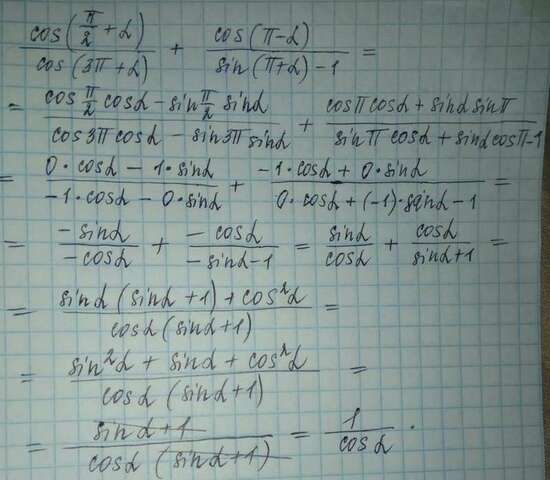 cos(π/2 + α)/cos(3π + α) + cos(π − α)/sin(π + α) − 1 =
= (cos π/2 cosα − sin π/2 sinα)/(cos3π cosα − sin3π sinα) + (cosπ cosα + sinα sinπ)/(sinπ cosα + sinα cosπ − 1)
= (0·cosα − 1·sinα)/(−1·cosα − 0·sinα) + (−1·cosα + 0·sinα)/(0·cosα + (−1)·sinα − 1) =
= −sinα/−cosα + −cosα/(−sinα − 1) = sinα/cosα + cosα/(sinα + 1) =
= (sinα (sinα + 1) + cos²α)/(cosα (sinα + 1)) =
= (sin²α + sinα + cos²α)/(cosα (sinα + 1)) =
= (sinα + 1)/(cosα (sinα + 1)) = 1/cosα .